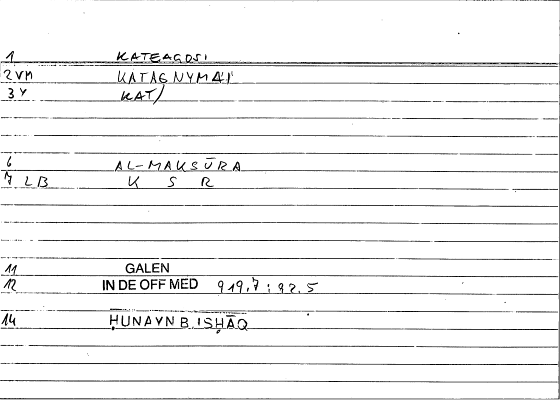 1 KATEAGOSI
2 VM KATAGNYMAI
3 Y KAT/
6 AL-MAKSŪRA
7 LB K S R
11 GALEN
12 IN DE OFF MED 919.7 : 92.5
14 ḤUNAYN B. ISḤĀQ